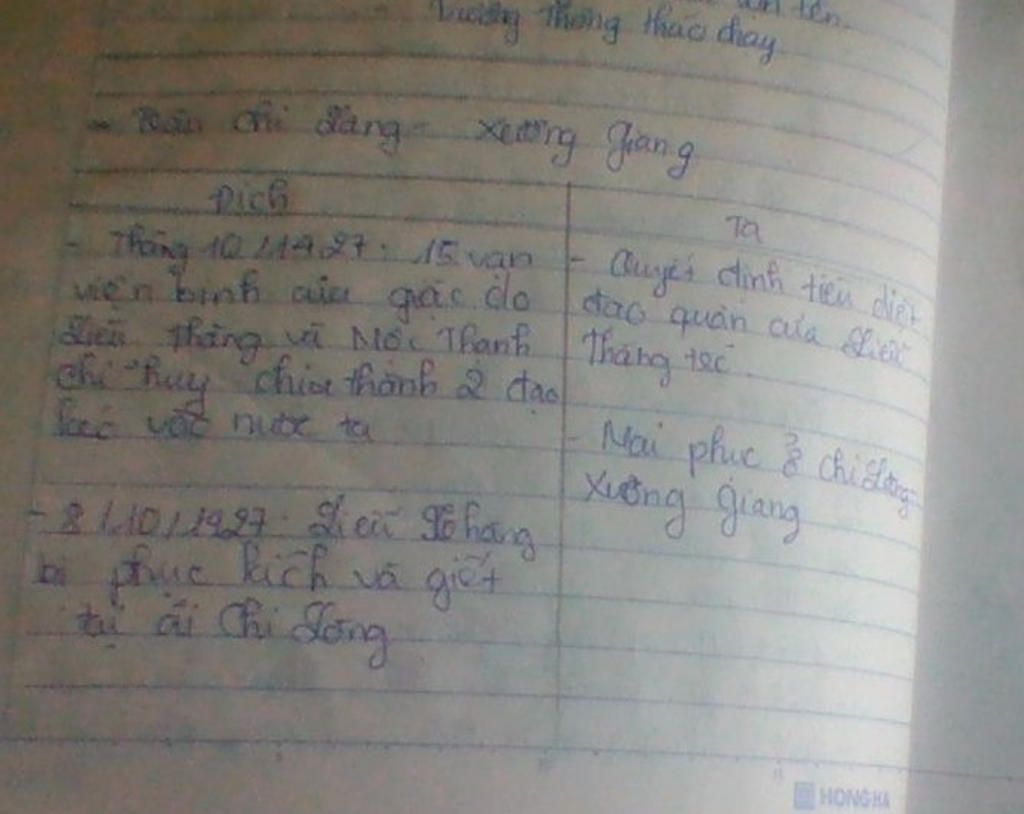 tên.
Vương Thông tháo chạy
- Trận Chi Lăng - Xương Giang
Địch
- Tháng 10/1427: 15 vạn
viện binh của giặc do
Liễu Thăng và Mộc Thạnh
chỉ huy chia thành 2 đạo
kéo vào nước ta
- 8/10/1427: Liễu Thăng
bị phục kích và giết
tại ải Chi Lăng
Ta
- Quyết định tiêu diệt
đạo quân của Liễu
Thăng trước.
- Mai phục ở Chi Lăng
Xương Giang
HONG HA